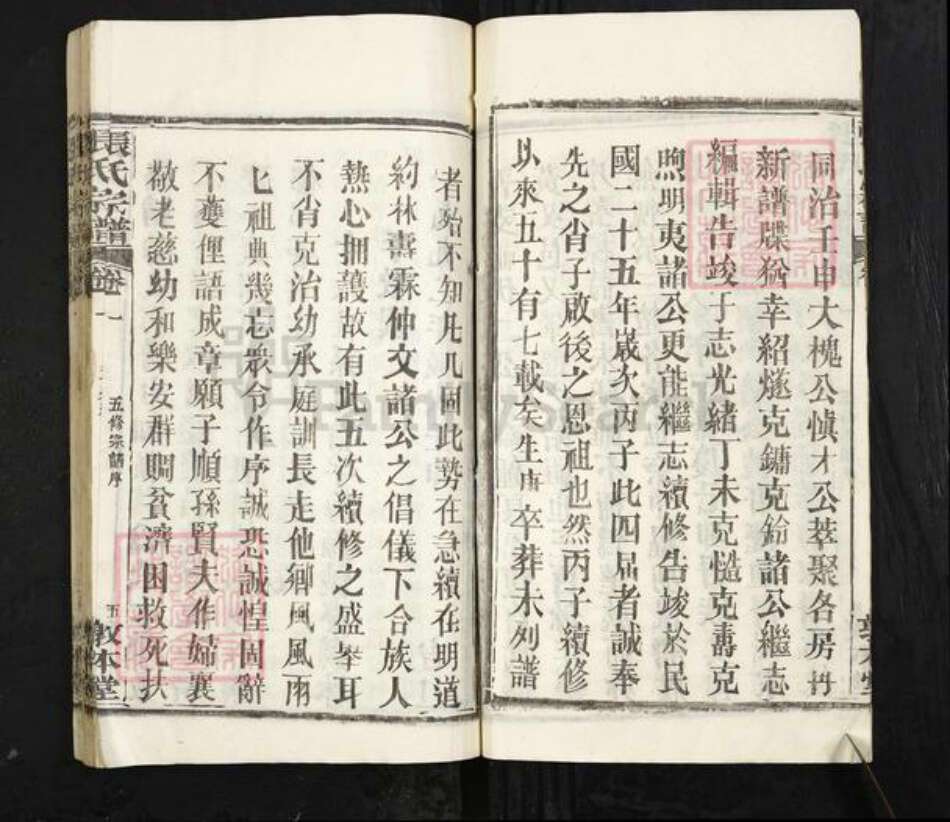 同治壬申大槐公慎才公萃聚各房丹
新譜牒猶幸紹燧克鏞克鈴諸公繼志
編輯告竣于志光緒丁未克慥克壽克
煦明夷諸公更能繼志續修告竣於民
國二十五年歲次丙子此四屆者誠奉
先之肖子啟後之恩祖也然丙子續修
以來五十有七載矣生庚卒葬未列譜
者殆不知凡几固此勢在急續在明道
約林壽霖仲文諸公之倡儀下合族人
熱心拥護故有此五次續修之盛举耳
不肖克治幼承庭訓長走他鄉風風雨
匕祖典幾忘眾令作序誠恐誠惶固辭
不獲俚語成章願子順孫賢夫作婦襄
敬老慈幼和樂安群賙貧濟困救死扶
張氏宗譜 卷一
五修宗譜序
五
敦本堂